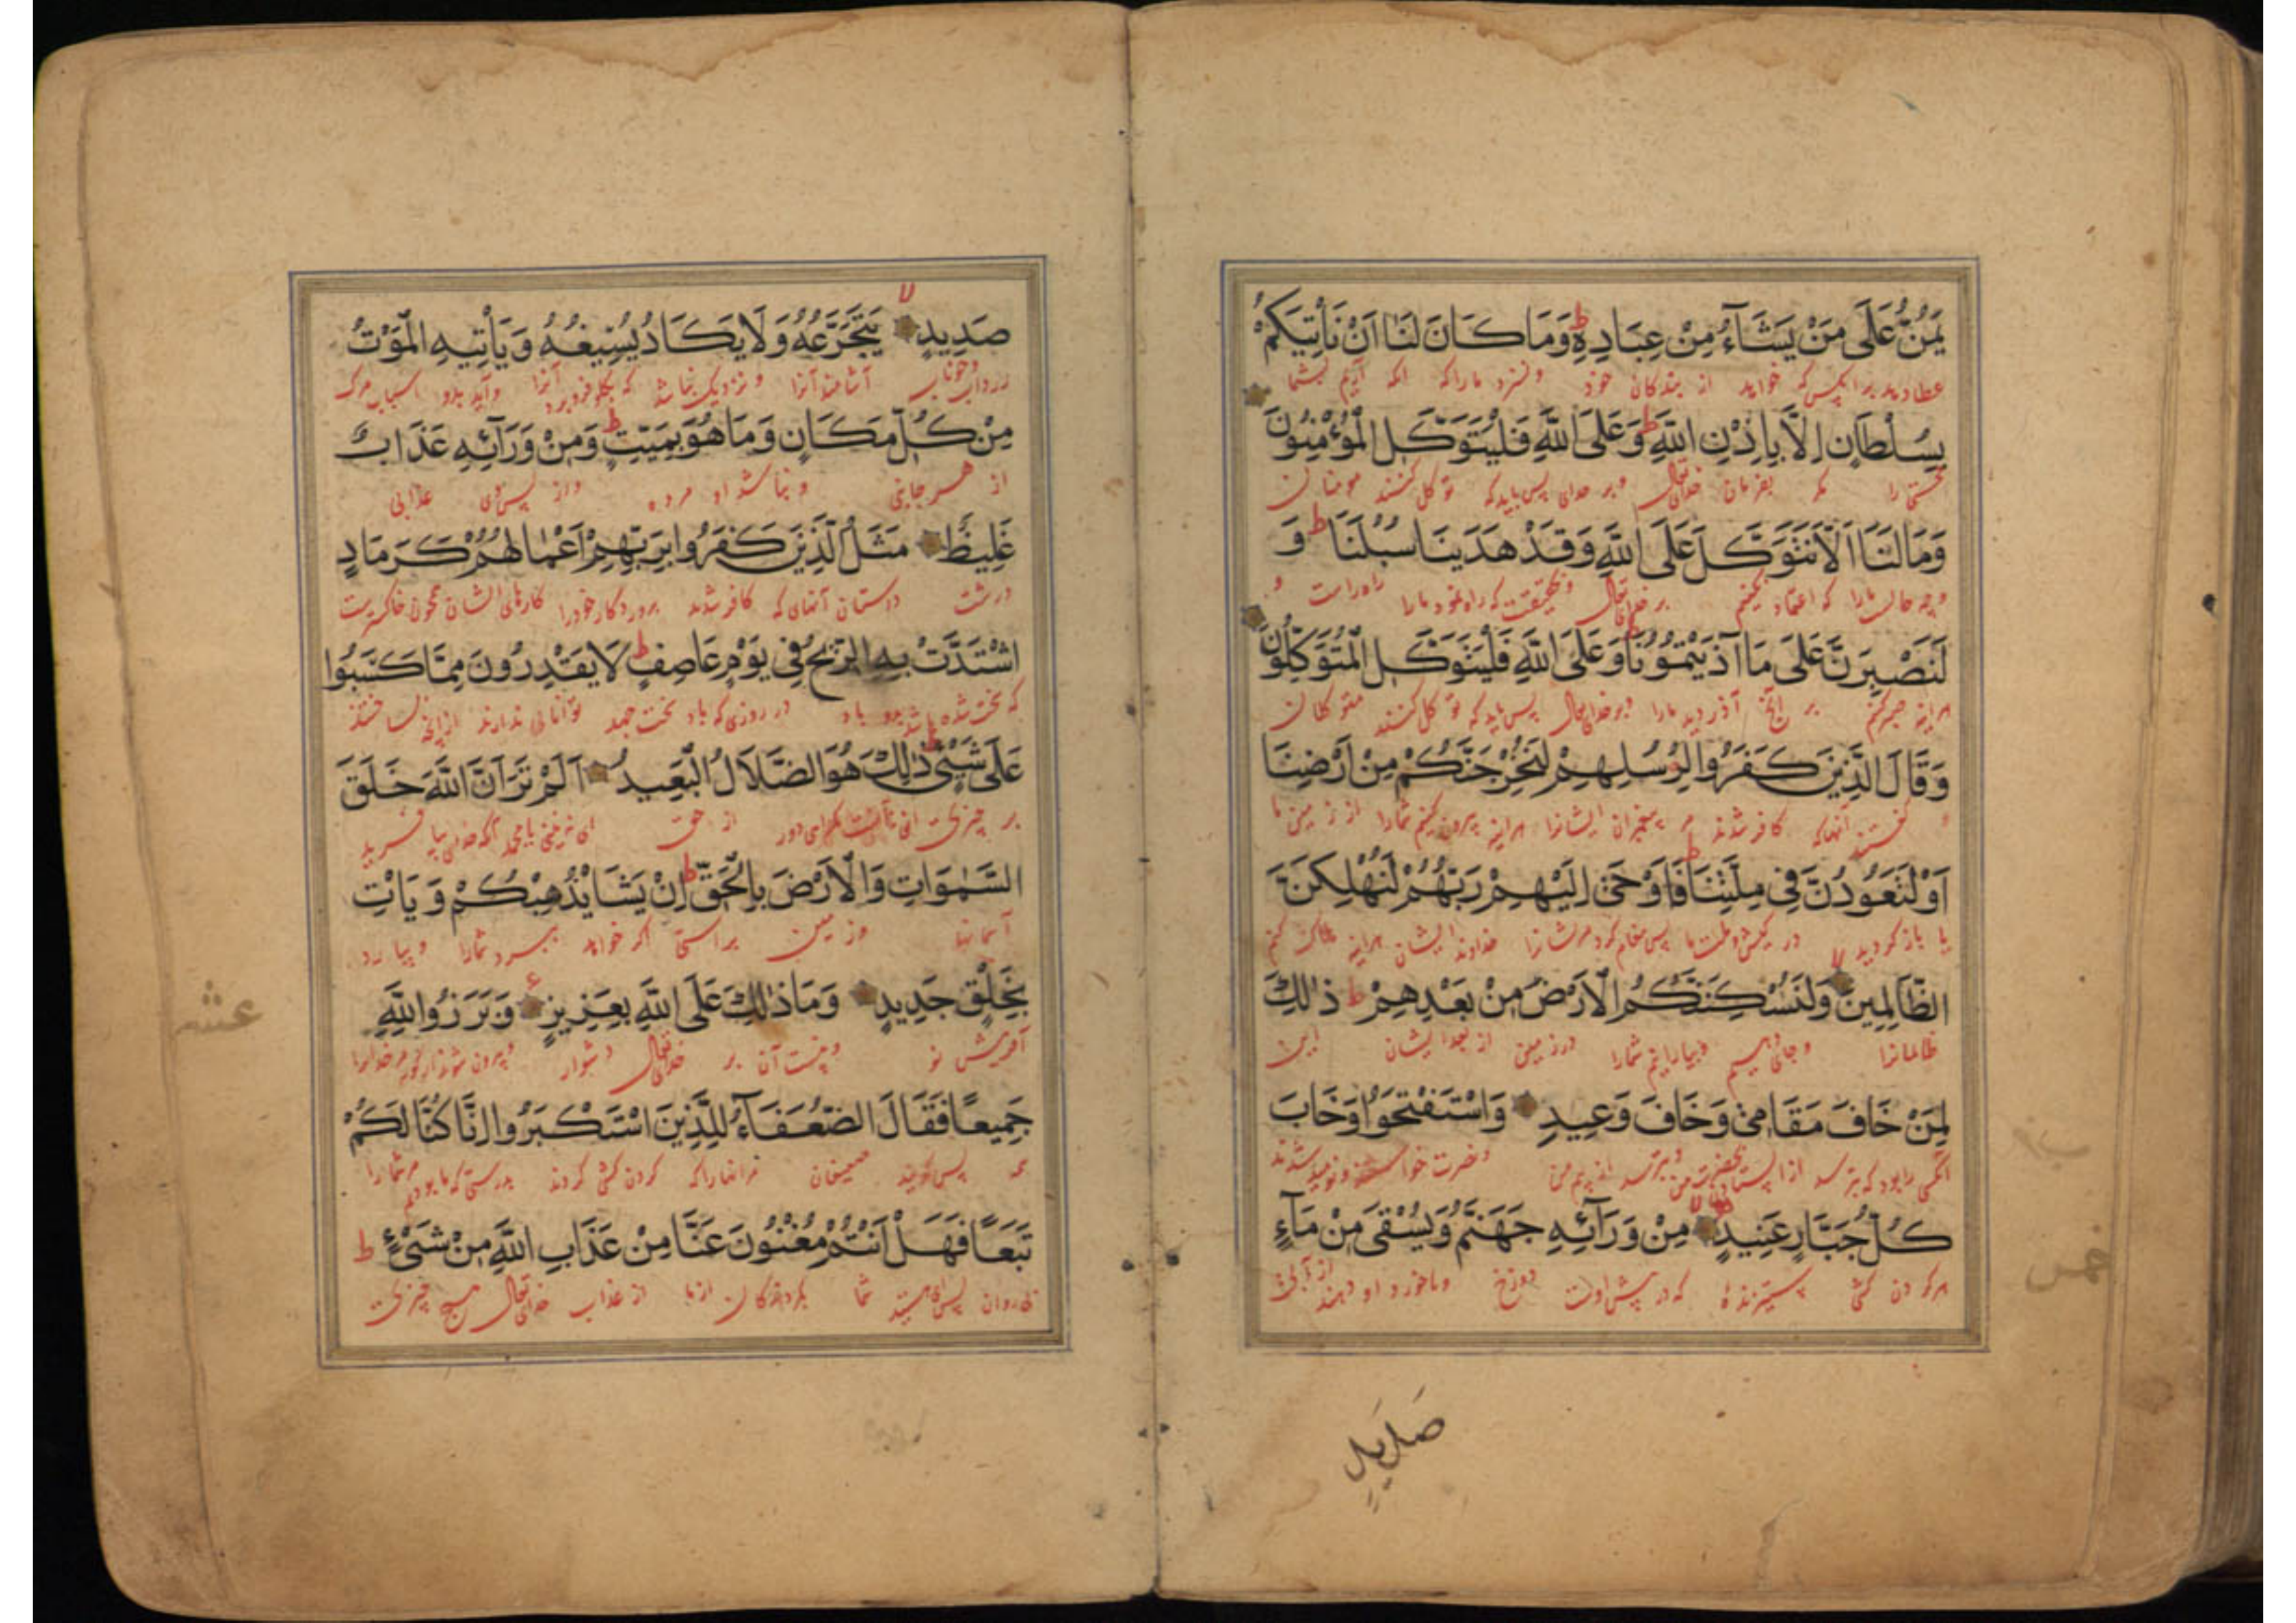 يَمُنُّ عَلَى مَنْ يَشَآءُ مِنْ عِبَادِهِ ط وَمَا كَانَ لَنَا اَنْ نَأْتِيَكُمْ
عطا دهد بر انکس که خواهد از بندکان خود و نسزد ما را که آریم بشما
بِسُلْطَانٍ اِلَّا بِاِذْنِ اللّٰهِ ط وَعَلَى اللّٰهِ فَلْيَتَوَكَّلِ الْمُؤْمِنُونَ
حجتی را مکر بفرمان خدای تعالی و بر خدای پس باید که توکل کنند مومنان
وَمَا لَنَا اَلَّا نَتَوَكَّلَ عَلَى اللّٰهِ وَقَدْ هَدَيٰنَا سُبُلَنَا ط وَ
و چه حالست ما را که اعتماد نکنیم بر خدای تعالی و بحقیقت که راه نمود ما را راه راست و
لَنَصْبِرَنَّ عَلَى مَا اٰذَيْتُمُوْنَا ط وَعَلَى اللّٰهِ فَلْيَتَوَكَّلِ الْمُتَوَكِّلُوْنَ
هراینه صبر کنیم بر آنچه آزردید ما را و بر خدای تعالی پس باید که توکل کنند متوکلان
وَقَالَ الَّذِيْنَ كَفَرُوا لِرُسُلِهِمْ لَنُخْرِجَنَّكُمْ مِنْ اَرْضِنَا
و کفتند آنها که کافر شدند مر پیغمبران ایشانرا هراینه بیرون کنیم شما را از زمین ما
اَوْ لَتَعُوْدُنَّ فِي مِلَّتِنَا ط فَاَوْحٰى اِلَيْهِمْ رَبُّهُمْ لَنُهْلِكَنَّ
یا باز کردید در کیش و ملت ما پس پیغام کرد مر ایشانرا خداوند ایشان هراینه هلاک کنیم
الظَّالِمِينَ لا وَلَنُسْكِنَنَّكُمُ الْاَرْضَ مِنْ بَعْدِهِمْ ط ذٰلِكَ
ظالمانرا و جای دهیم شما را در زمین از بعد ایشان این
لِمَنْ خَافَ مَقَامِيْ وَخَافَ وَعِيدِ وَاسْتَفْتَحُوْا وَخَابَ
انکس را بود که بترسد و بترسد از بیم من و نصرت خواستند و نومید شدند
كُلُّ جَبَّارٍ عَنِيدٍ لا مِنْ وَرَآئِهِ جَهَنَّمُ وَيُسْقٰى مِنْ مَآءٍ
هر کردن کشی ستیزنده که در پیش اوست دوزخ از آبی
صَدِيدٍ
خمس
صَدِيدٍ لا يَتَجَرَّعُهُ وَلَا يَكَادُ يُسِيغُهُ وَيَأْتِيهِ الْمَوْتُ
زرداب و خوناب آشامند آنرا و نزدیک نباشد که بکلو فرو برد آنرا و آید بدو اسباب مرک
مِنْ كُلِّ مَكَانٍ وَمَا هُوَ بِمَيِّتٍ ط وَمِنْ وَرَآئِهِ عَذَابٌ
از هر جایی و نباشد او مرده و از پس وی عذابی
غَلِيظٌ مَثَلُ الَّذِيْنَ كَفَرُوا بِرَبِّهِمْ اَعْمَالُهُمْ كَرَمَادٍ
درشت داستان آنهای که کافر شدند پروردکار خود را کارهای ایشان همچون خاکستریست
اشْتَدَّتْ بِهِ الرِّيْحُ فِي يَوْمٍ عَاصِفٍ ط لَا يَقْدِرُونَ مِمَّا كَسَبُوا
که سخت شده باشد بدو باد در روزی که باد سخت جهد توانایی ندارند از انچه ساختند
عَلَى شَيْءٍ ط ذٰلِكَ هُوَ الضَّلَالُ الْبَعِيدُ اَلَمْ تَرَ اَنَّ اللّٰهَ خَلَقَ
بر چیزی دور از حق
السَّمٰوَاتِ وَالْاَرْضَ بِالْحَقِّ ط اِنْ يَشَا يُذْهِبْكُمْ وَيَاْتِ
آسمانها و زمین براستی اکر خواهد ببرد شما را و بیارد
بِخَلْقٍ جَدِيدٍ وَمَا ذٰلِكَ عَلَى اللّٰهِ بِعَزِيزٍ ع وَبَرَزُوا لِلّٰهِ
آفرینش نو و نیست آن بر خدای تعالی دشوار و بیرون شوند از کور مر خدایرا
جَمِيعًا فَقَالَ الضُّعَفَآءُ لِلَّذِيْنَ اسْتَكْبَرُوا اِنَّا كُنَّا لَكُمْ
پس کویند ضعیفان مر آنها را که کردن کشی کردند بدرستی که ما بودیم مر شما را
تَبَعًا فَهَلْ اَنْتُمْ مُغْنُوْنَ عَنَّا مِنْ عَذَابِ اللّٰهِ مِنْ شَيْءٍ ط
پی روان پس هستید شما از ما از عذاب خدای تعالی هیچ چیزی
عشر